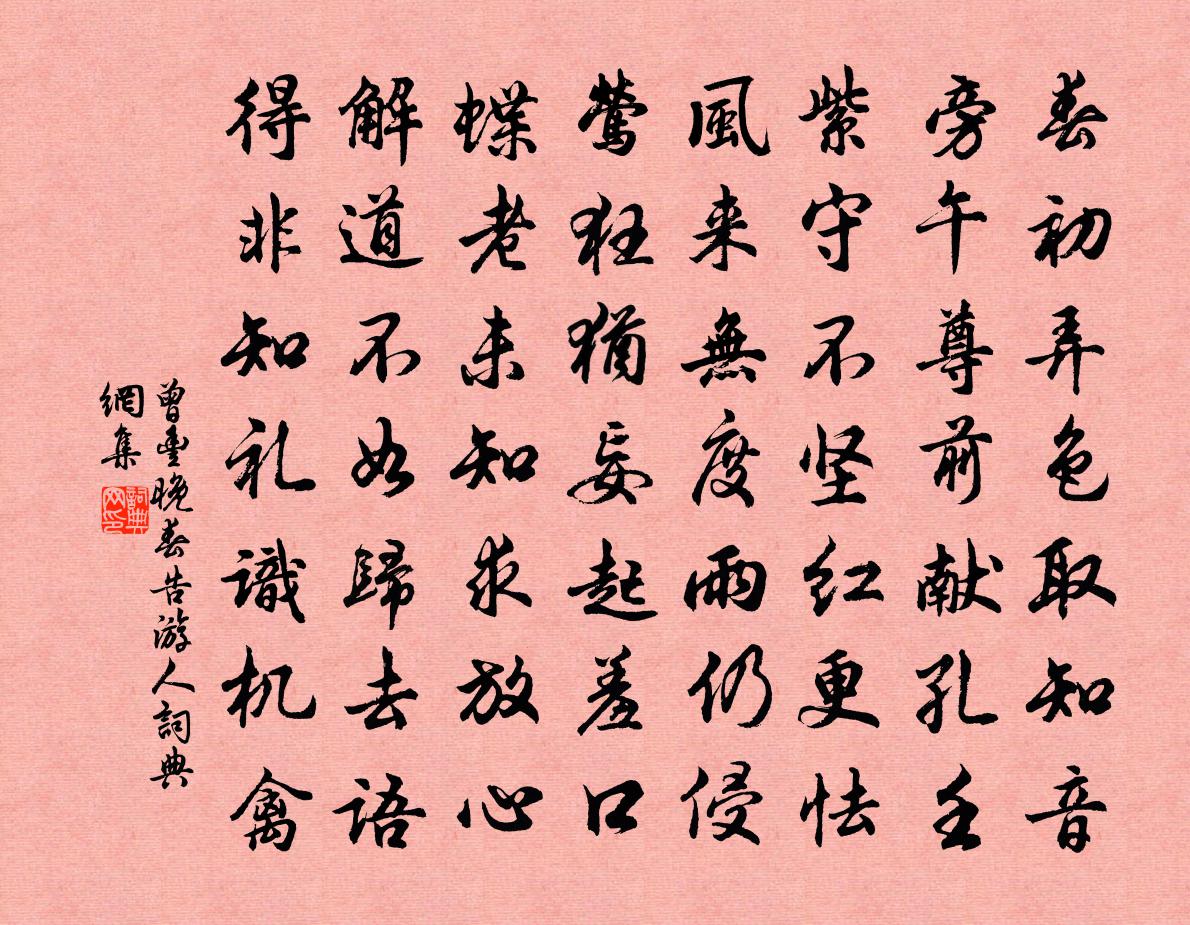 春初弄色取知音
旁午尊前献孔壬
紫守不坚红更怯
風来無度雨仍侵
鶯狂猶妄起羞口
蝶老未知求放心
解道不如歸去語
得非知礼識机禽
曾豐晚春告游人詞典
網集
詞典网印